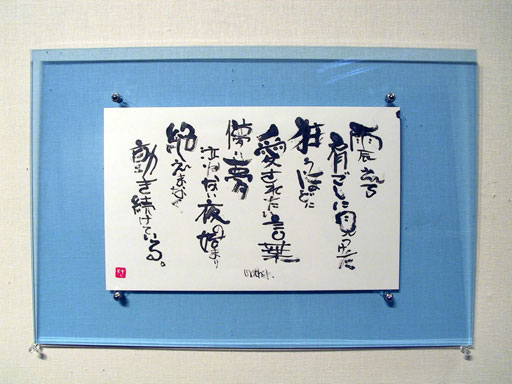 肩ごしに見えた
狂うほどに
愛されたい言葉
儚い夢
泣けない夜の始まり
絶えまなく
動き続けている。